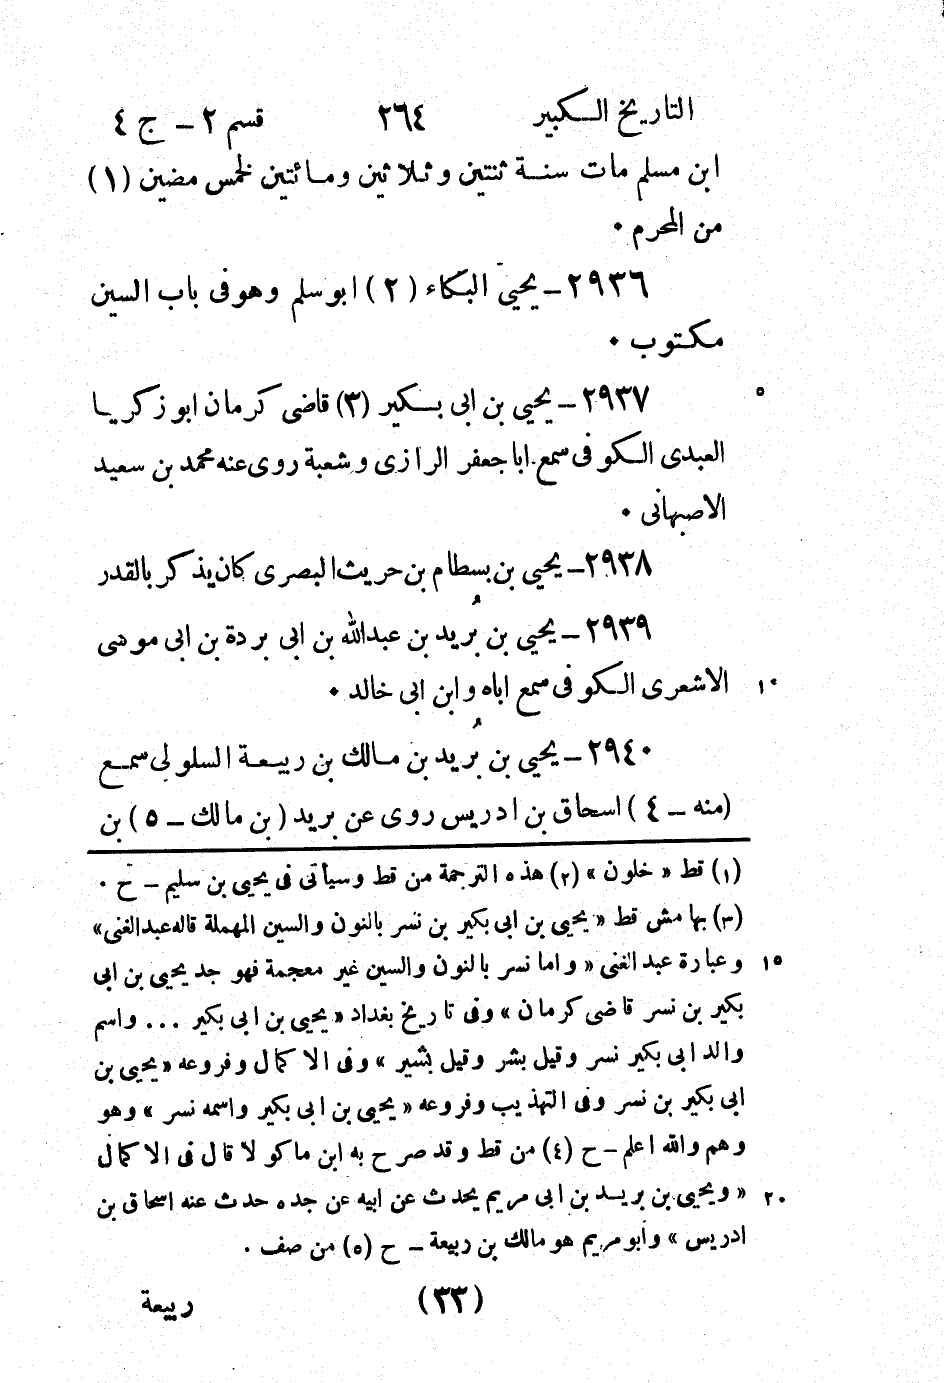 التاريخ الكبير ٢٦٤ قسم ٢ – ج ٤
ابن مسلم مات سنة ثنتين وثلاثين ومائتين لخمس مضين (١)
من المحرم ٠
٢٩٣٦ – يحيى البكاء (٢) ابو سلم وهو فى باب السين
مكتوب ٠
٢٩٣٧ – يحيى بن ابى بكير (٣) قاضى كرمان ابو زكريا ٥
العبدى الكوفى سمع ابا جعفر الرازى وشعبة روى عنه محمد بن سعيد
الاصبهانى ٠
٢٩٣٨ – يحيى بن بسطام بن حريث البصرى كان يذكر بالقدر
٢٩٣٩ – يحيى بن بُريد بن عبدالله بن ابى بردة بن ابى موسى
الاشعرى الكوفى سمع اباه وابن ابى خالد ٠ ١٠
٢٩٤٠ – يحيى بن بُريد بن مالك بن ربيعة السلولى سمع
(منه – ٤) اسحاق بن ادريس روى عن بريد (بن مالك – ٥) بن
(١) قط « خلون » (٢) هذه الترجمة من قط وسيأتى فى يحيى بن سليم – ح ٠
(٣) بهامش قط « يحيى بن ابى بكير بن نسر بالنون والسين المهملة قاله عبدالغنى »
وعبارة عبد الغنى « واما نسر بالنون والسين غير معجمة فهو جد يحيى بن ابى ١٥
بكير بن نسر قاضى كرمان » وفى تاريخ بغداد « يحيى بن ابى بكير ... واسم
والد ابى بكير نسر وقيل بشر وقيل بشير » وفى الاكمال وفروعه « يحيى بن
ابى بكير بن نسر وفى التهذيب وفروعه « يحيى بن ابى بكير واسمه نسر » وهو
وهم والله اعلم – ح (٤) من قط وقد صرح به ابن ماكولا قال فى الاكمال
« ويحيى بن بريد بن ابى مريم يحدث عن ابيه عن جده حدث عنه اسحاق بن ٢٠
ادريس » وأبو مريم هو مالك بن ربيعة – ح (٥) من صف ٠
(٣٣) ربيعة